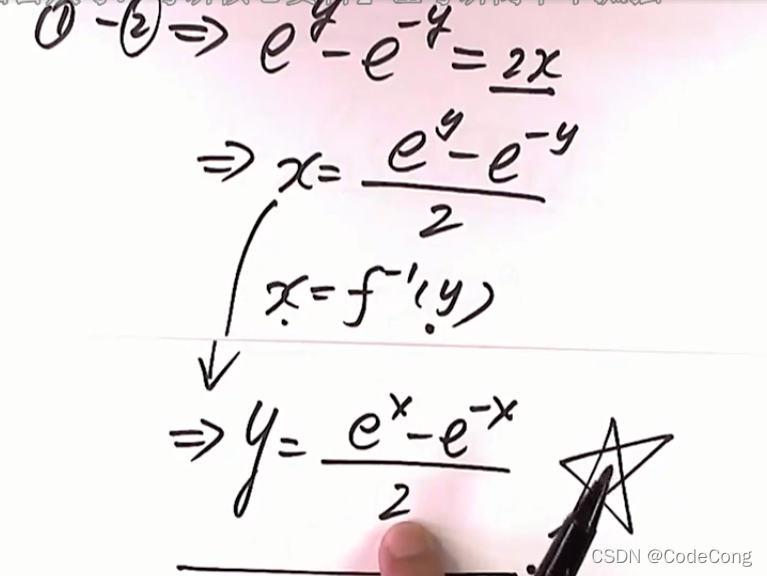 ① - ② ⇒ e^y - e^{-y} = 2x
⇒ x = \frac{e^y - e^{-y}}{2}
x = f^{-1}(y)
⇒ y = \frac{e^x - e^{-x}}{2}
CSDN @CodeCong